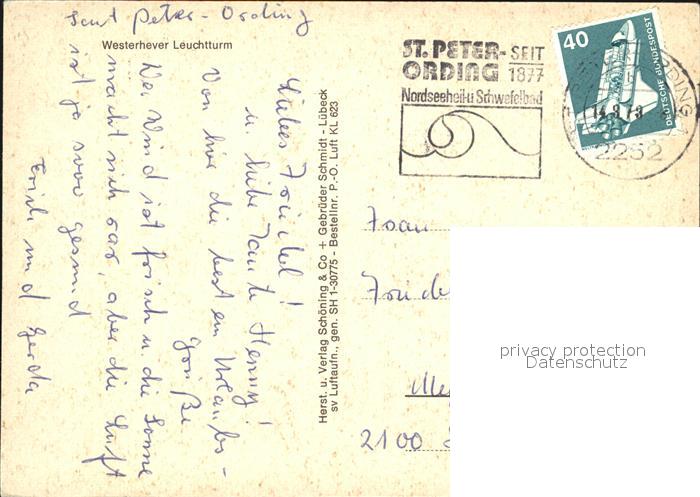 Sant Peter-Ording
Westerhever Leuchtturm
Liebes Friedel!
u. liebe Tante Henny!
Von hier die besten Urlaubs-
grüße
Der Wind ist frisch u die Sonne
macht sich rar, aber die Luft
ist ja so gesund
Erich und Gerda
Herst. u. Verlag Schöning & Co + Gebrüder Schmidt - Lübeck
sv Luftaufn., gen. SH 1-30775 - Bestellnr. P.-O. Luft KL 623
ST. PETER-
ORDING
SEIT
1877
Nordseeheil-u Schwefelbad
40
DEUTSCHE BUNDESPOST
2252
Frau
2100
privacy protection
Datenschutz